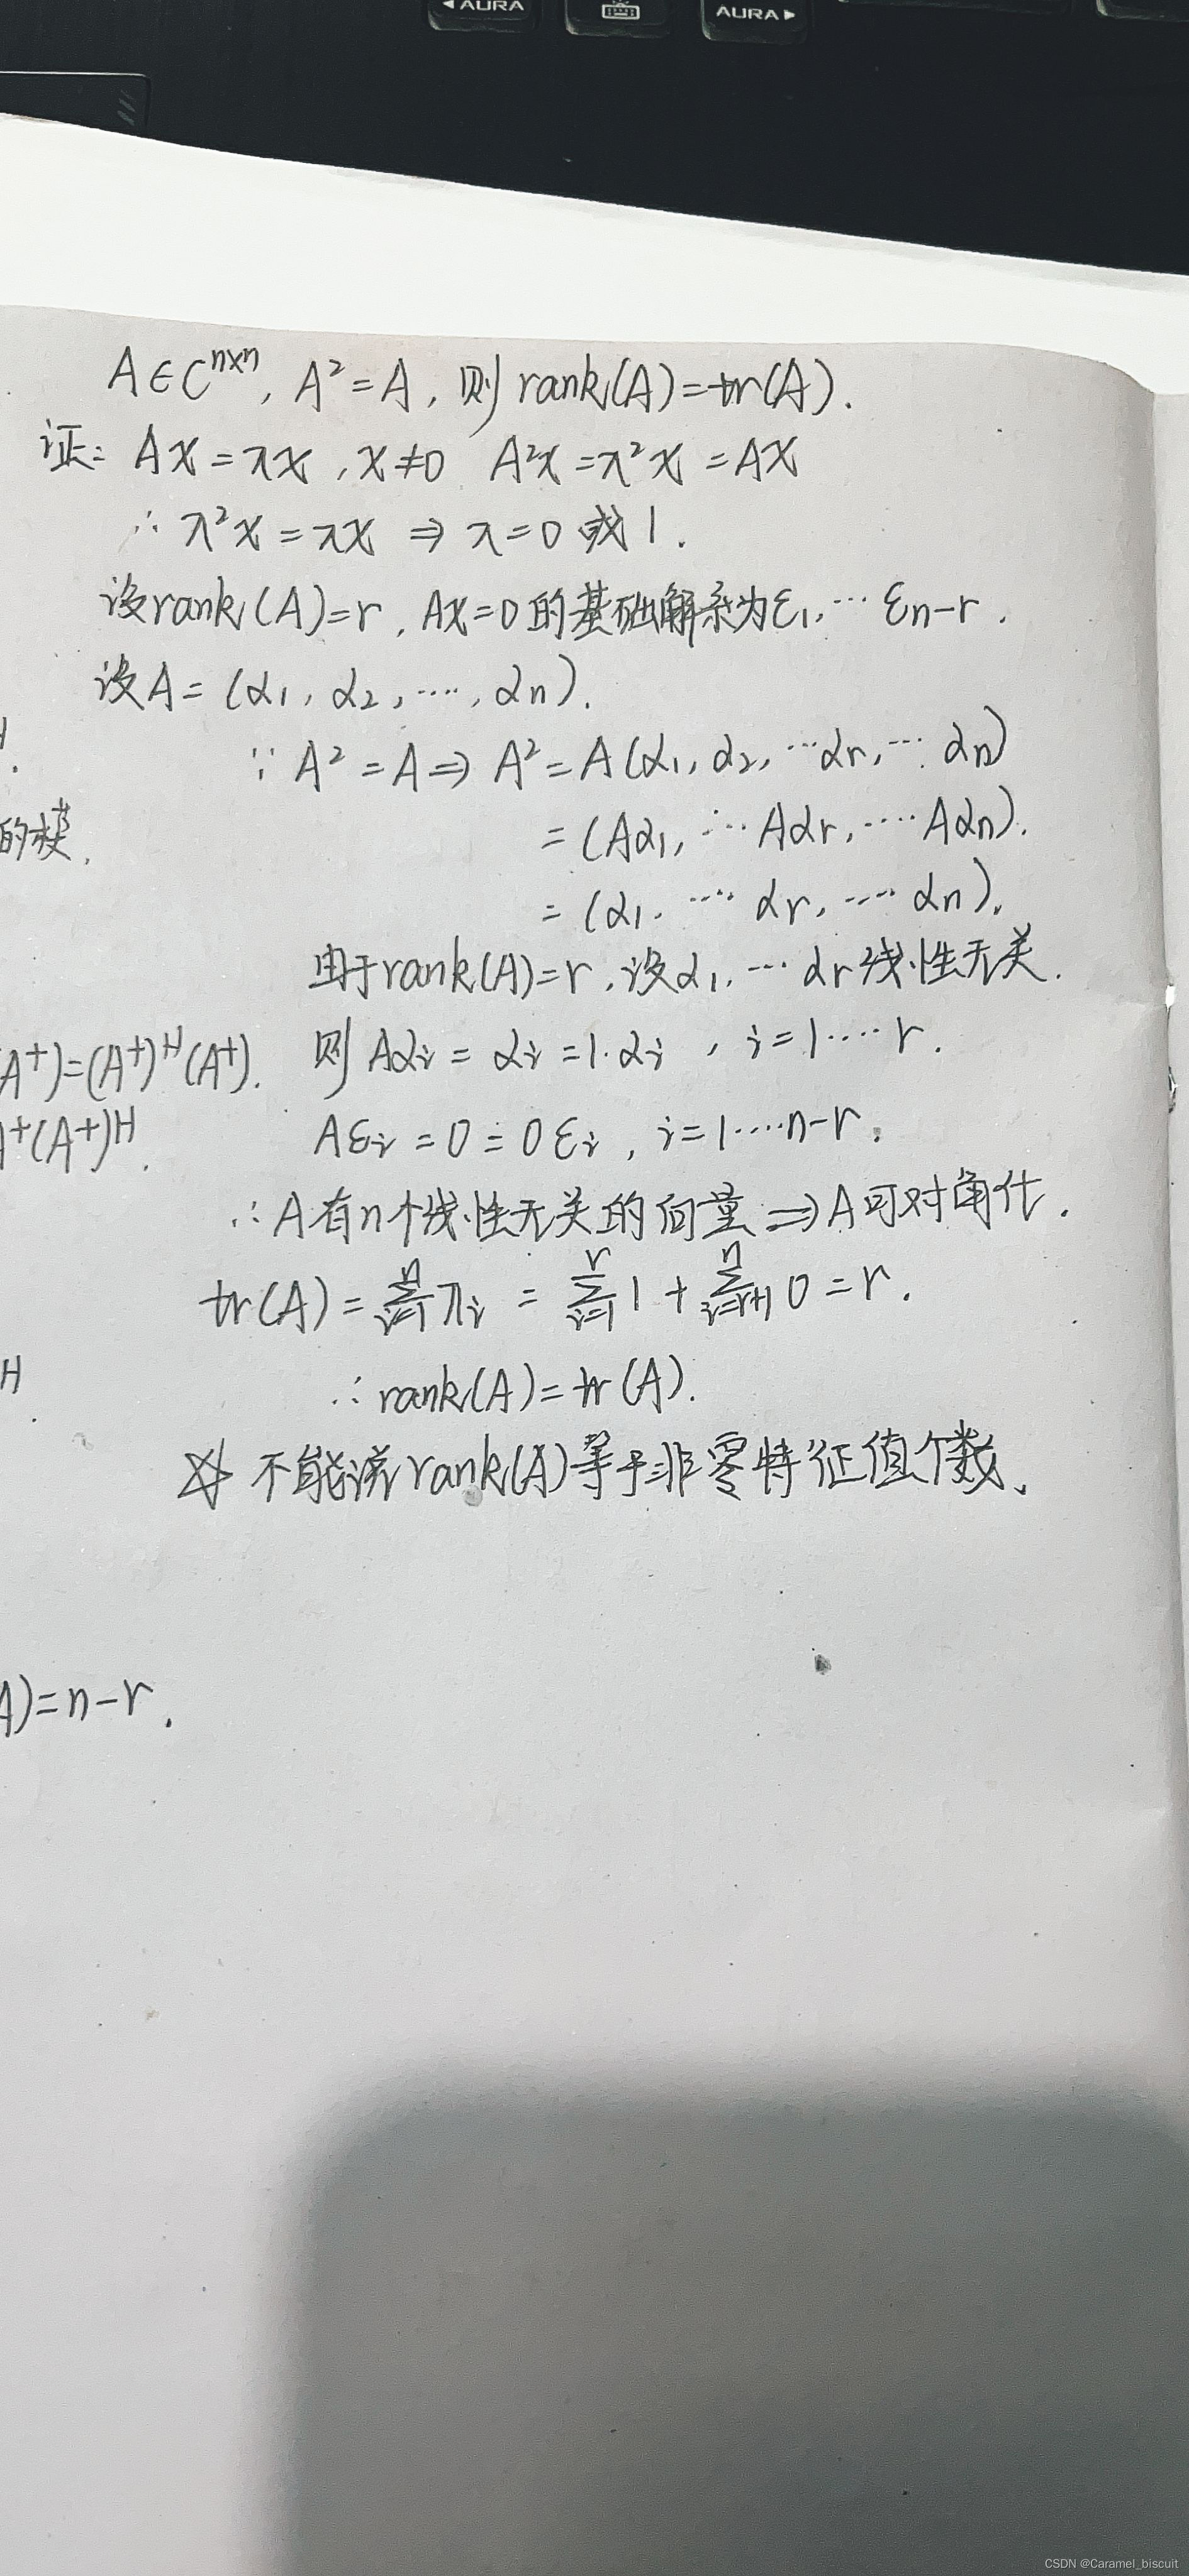 ◂AURA
AURA▸
A∈C^{n×n}, A²=A, 则 rank(A)=tr(A).
证: Ax=λx, x≠0 A²x=λ²x=Ax
∴ λ²x=λx ⇒ λ=0 或 1.
设rank(A)=r, Ax=0的基础解系为ε₁,…ε_{n-r}.
设A=(α₁, α₂, …, α_n).
∵ A²=A ⇒ A²=A(α₁, α₂, …α_r, … α_n)
=(Aα₁, …Aα_r, …Aα_n).
的模.
=(α₁, … α_r, … α_n),
由于rank(A)=r, 设α₁, … α_r线性无关.
A⁺)=(A⁺)^H(A⁺). 则 Aα_i = α_i =1·α_i , i=1…r.
⁺(A⁺)^H. Aε_i = 0 = 0ε_i, i=1…n-r.
∴A有n个线性无关的向量 ⇒ A可对角化.
tr(A) = ∑_{i=1}^{n} λ_i = ∑_{i=1}^{r} 1 + ∑_{i=r+1}^{n} 0 = r.
H
∴ rank(A)=tr(A).
不能说rank(A)等于非零特征值个数.
A)=n-r.
CSDN @Caramel_biscuit